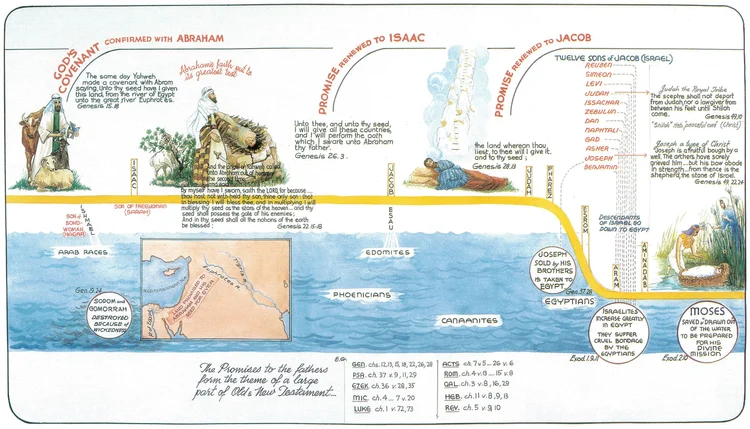 GOD'S COVENANT CONFIRMED WITH ABRAHAM
The same day Yahweh
made a covenant with Abram
saying, Unto thy seed have I given
this land, from the river of Egypt
unto the great river Euphrates.
Genesis 15.18
Abraham's faith put to
its greatest test
ISAAC
SON OF FREEWOMAN
(SARAH)
ISHMAEL
SON OF
BOND-
WOMAN
(HAGAR)
ARAB RACES
By myself have I sworn, saith the LORD, for because...
thou hast not withheld thy son, thine only son: that
in blessing I will bless thee, and in multiplying I will
multiply thy seed as the stars of the heaven... and thy
seed shall possess the gate of his enemies;
And in thy seed shall all the nations of the earth
be blessed;
Genesis 22.15-18
PROMISE RENEWED TO ISAAC
Unto thee, and unto thy seed,
I will give all these countries,
and I will perform the oath
which I sware unto Abraham
thy father.
Genesis 26.3.
JACOB
ESAU
EDOMITES
PHOENICIANS
CANAANITES
PROMISE RENEWED TO JACOB
the land whereon thou
liest, to thee will I give it,
and to thy seed;
Genesis 28.13
TWELVE SONS OF JACOB (ISRAEL)
REUBEN
SIMEON
LEVI
JUDAH
ISSACHAR
ZEBULUN
DAN
NAPHTALI
GAD
ASHER
JOSEPH
BENJAMIN
Judah the Royal Tribe
The sceptre shall not depart
from Judah, nor a lawgiver from
between his feet until Shiloh
come.
Genesis 49.10
"Shiloh" the peaceful one (Christ)
Joseph a type of Christ
"Joseph is a fruitful bough by a
well. The archers have sorely
grieved him... but his bow abode
in strength... from thence is the
shepherd, the stone of Israel.
Genesis 49.22,24
JUDAH
PHAREZ
ESROM
ARAM
AMINADAB
DESCENDANTS
OF ISRAEL GO
DOWN TO EGYPT
JOSEPH
SOLD by HIS
BROTHERS
IS TAKEN TO
EGYPT
Gen. 37.28
EGYPTIANS
ISRAELITES
INCREASE GREATLY
IN EGYPT
THEY SUFFER
CRUEL BONDAGE
BY THE
EGYPTIANS
Exod. 1.9,11
MOSES
SAVED & DRAWN OUT
OF THE WATER
TO BE PREPARED
FOR HIS
DIVINE
MISSION
Exod. 2.10
SODOM and
GOMORRAH
DESTROYED
BECAUSE of
WICKEDNESS
The Promises to the fathers
form the theme of a large
part of Old & New Testament...
E.G.
GEN. chs. 12, 13, 15, 18, 22, 26, 28
PSA. ch. 37 v. 9, 11, 29
EZEK. ch. 36 v. 28, 35
MIC. ch. 4... 7 v. 20
LUKE ch. 1 v. 72, 73
ACTS ch. 7 v. 5... 26 v. 6
ROM. ch. 4 v. 13... 15 v. 8
GAL. ch. 3 v. 8, 16, 29
HEB. ch. 11 v. 8, 9, 13
REV. ch. 5 v. 9, 10